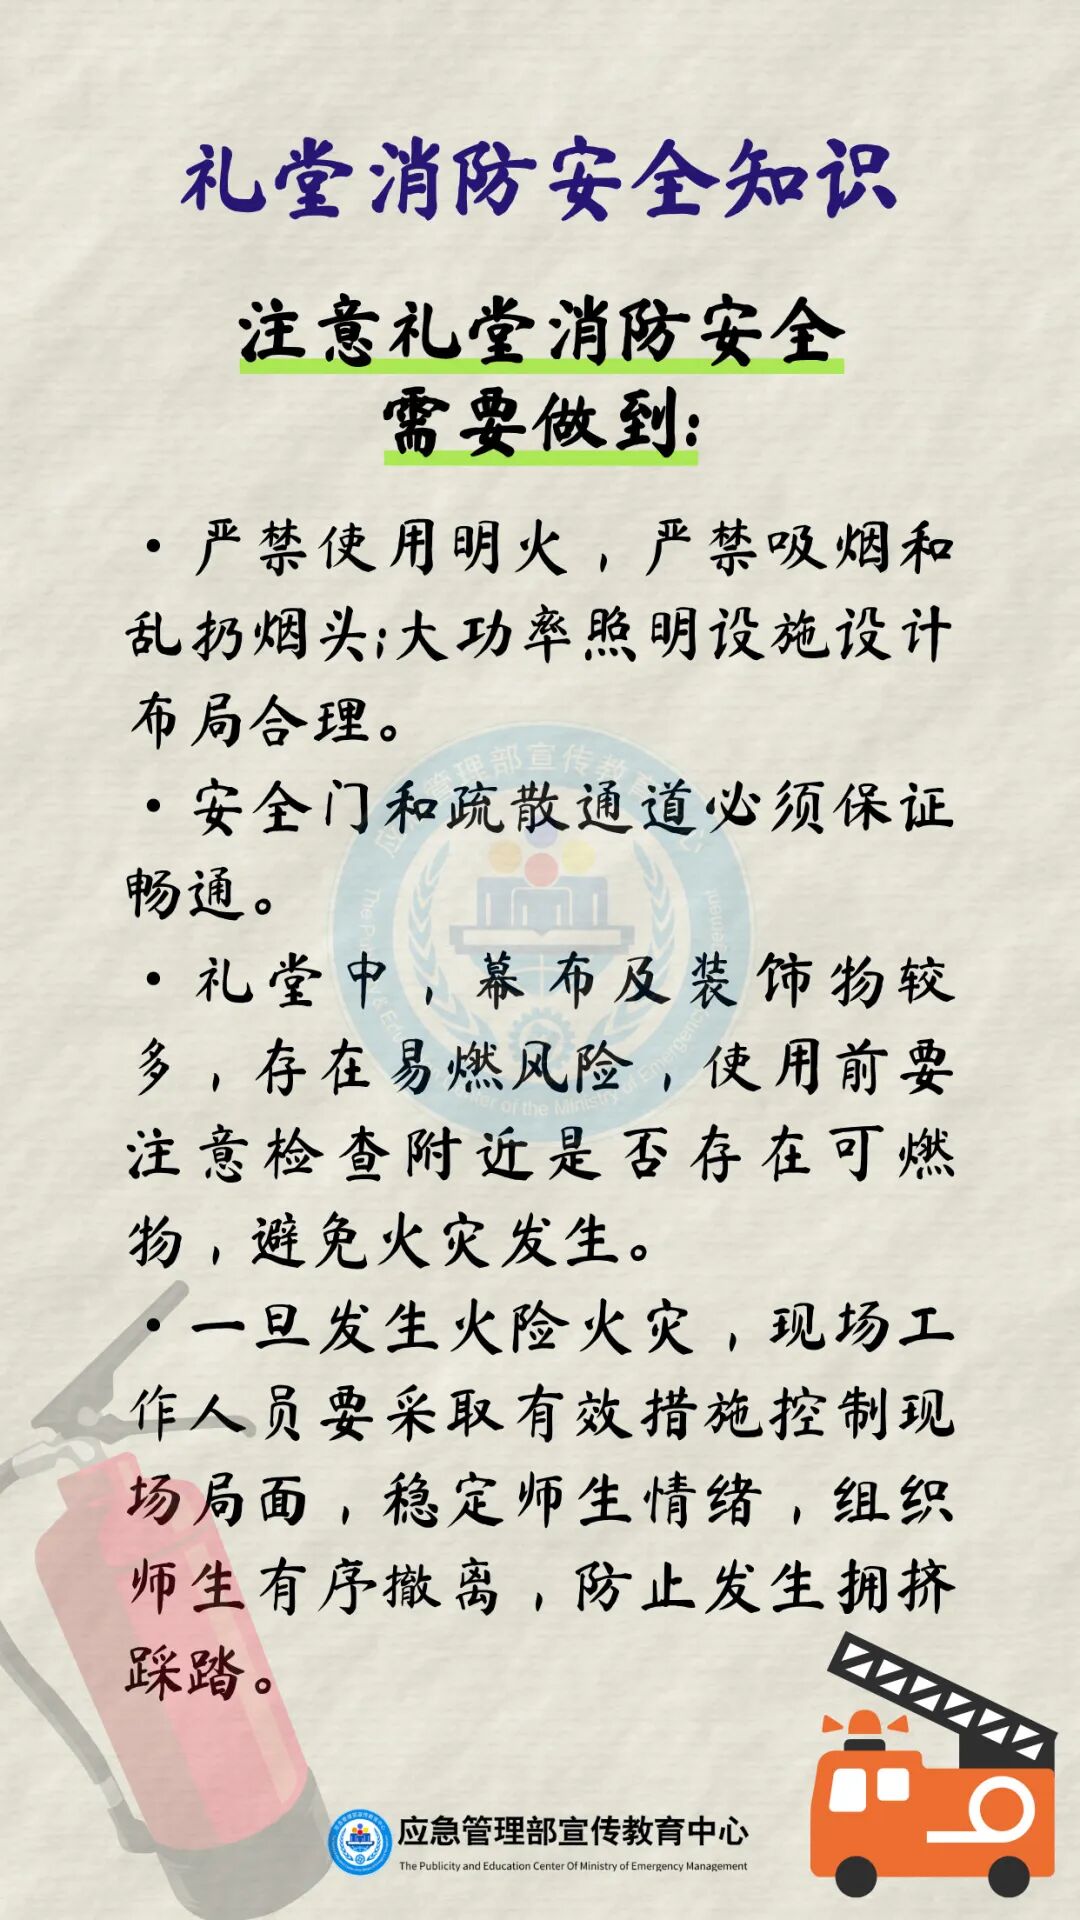 礼堂消防安全知识
注意礼堂消防安全
需要做到:
·严禁使用明火，严禁吸烟和
乱扔烟头;大功率照明设施设计
布局合理。
·安全门和疏散通道必须保证
畅通。
·礼堂中，幕布及装饰物较
多，存在易燃风险，使用前要
注意检查附近是否存在可燃
物，避免火灾发生。
·一旦发生火险火灾，现场工
作人员要采取有效措施控制现
场局面，稳定师生情绪，组织
师生有序撤离，防止发生拥挤
踩踏。
应急管理部宣传教育中心
The Publicity and Education Center Of Ministry of Emergency Management